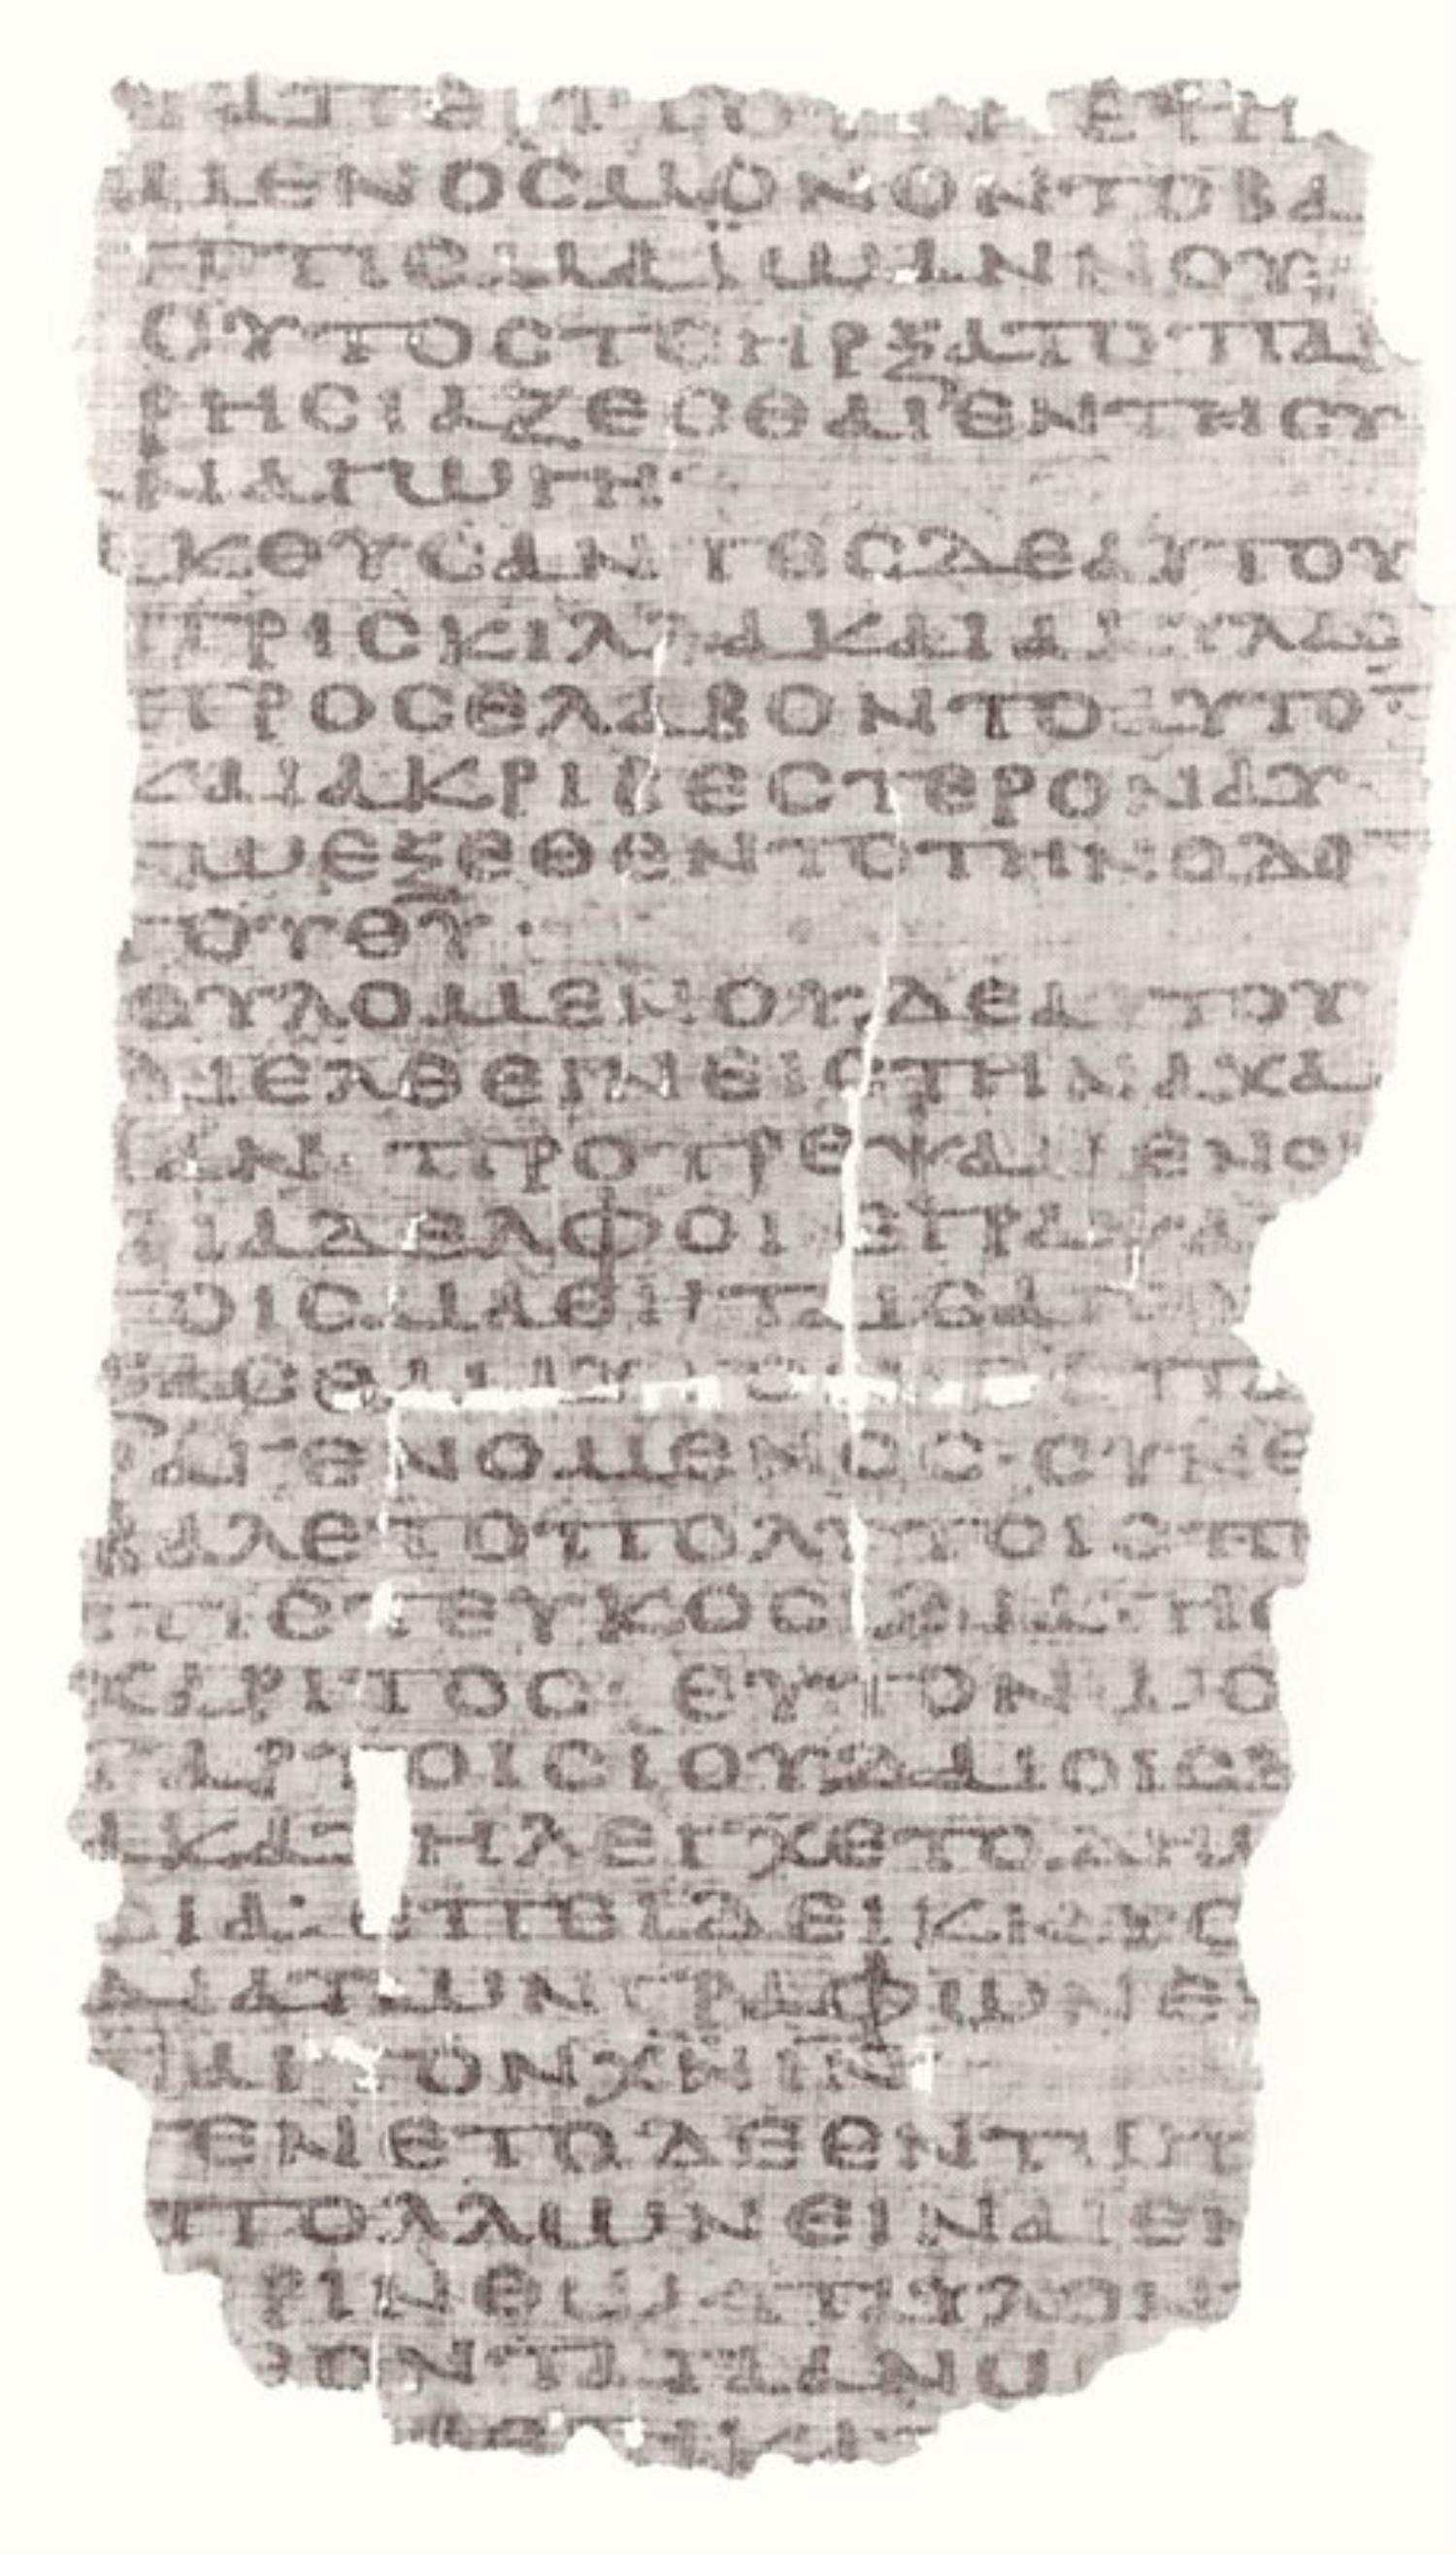 ΜΕΝΟϹΜΟΝΟΝΤΟΒΑ
ΠΤΙϹΜΑΪΩΑΝΝΟΥ
ΟΥΤΟϹΤΕΗΡΞΑΤΟΠΑΡ
ΡΗϹΙΑΖΕϹΘΑΙ᾽ΕΝΤΗϹΥ
ΝΑΓΩΓΗ·
ΚΟΥϹΑΝΤΕϹΔΕΑΥΤΟΥ
ΠΡΙϹΚΙΛΛΑΚΑΙΑΚΥΛΑϹ
ΠΡΟϹΕΛΑΒΟΝΤΟΑΥΤΟ̅
ΚΑΙΑΚΡΙΒΕϹΤΕΡΟΝΑΥ
ΤΩΕΞΕΘΕΝΤΟΤΗΝΟΔΟ̅
ΤΟΥΘ̅Υ̅·
ΟΥΛΟΜΕΝΟΥΔΕΑΥΤΟΥ
ΔΙΕΛΘΕΙΝΕΙϹΤΗΝΑΧΑ
ΙΑΝ· ΠΡΟΤΡΕΨΑΜΕΝΟΙ
ΟΙΑΔΕΛΦΟΙ ΕΓΡΑΨΑ
ΤΟΙϹΜΑΘΗΤΑΙϹ
ΡΑΓΕΝΟΜΕΝΟϹ·ϹΥΝΕ
ΒΑΛΕΤΟΠΟΛΥΤΟΙϹΠΕ
ΠΙϹΤΕΥΚΟϹΙΔΙΑΤΗϹ
ΧΑΡΙΤΟϹ· ΕΥΤΟΝΩϹ
ΓΑΡΤΟΙϹΙΟΥΔΑΙΟΙϹΔ
ΙΑΚΑΤΗΛΕΓΧΕΤΟΔΗΜ
ΟϹΙΑ·ΕΠΕΙΔΕΙΚΝΥϹ
ΔΙΑΤΩΝΓΡΑΦΩΝΕΙ
ΝΑΙΤΟΝΧ̅Ν̅Ι̅Η̅Ν̅
ΓΕΝΕΤΟΔΕΕΝΤΩΤΟΝ
ΑΠΟΛΛΩΝΕΙΝΑΙΕΝ
ΡΙΝΘΩ
ΘΟΝΤΑΤΑΑΝΩ